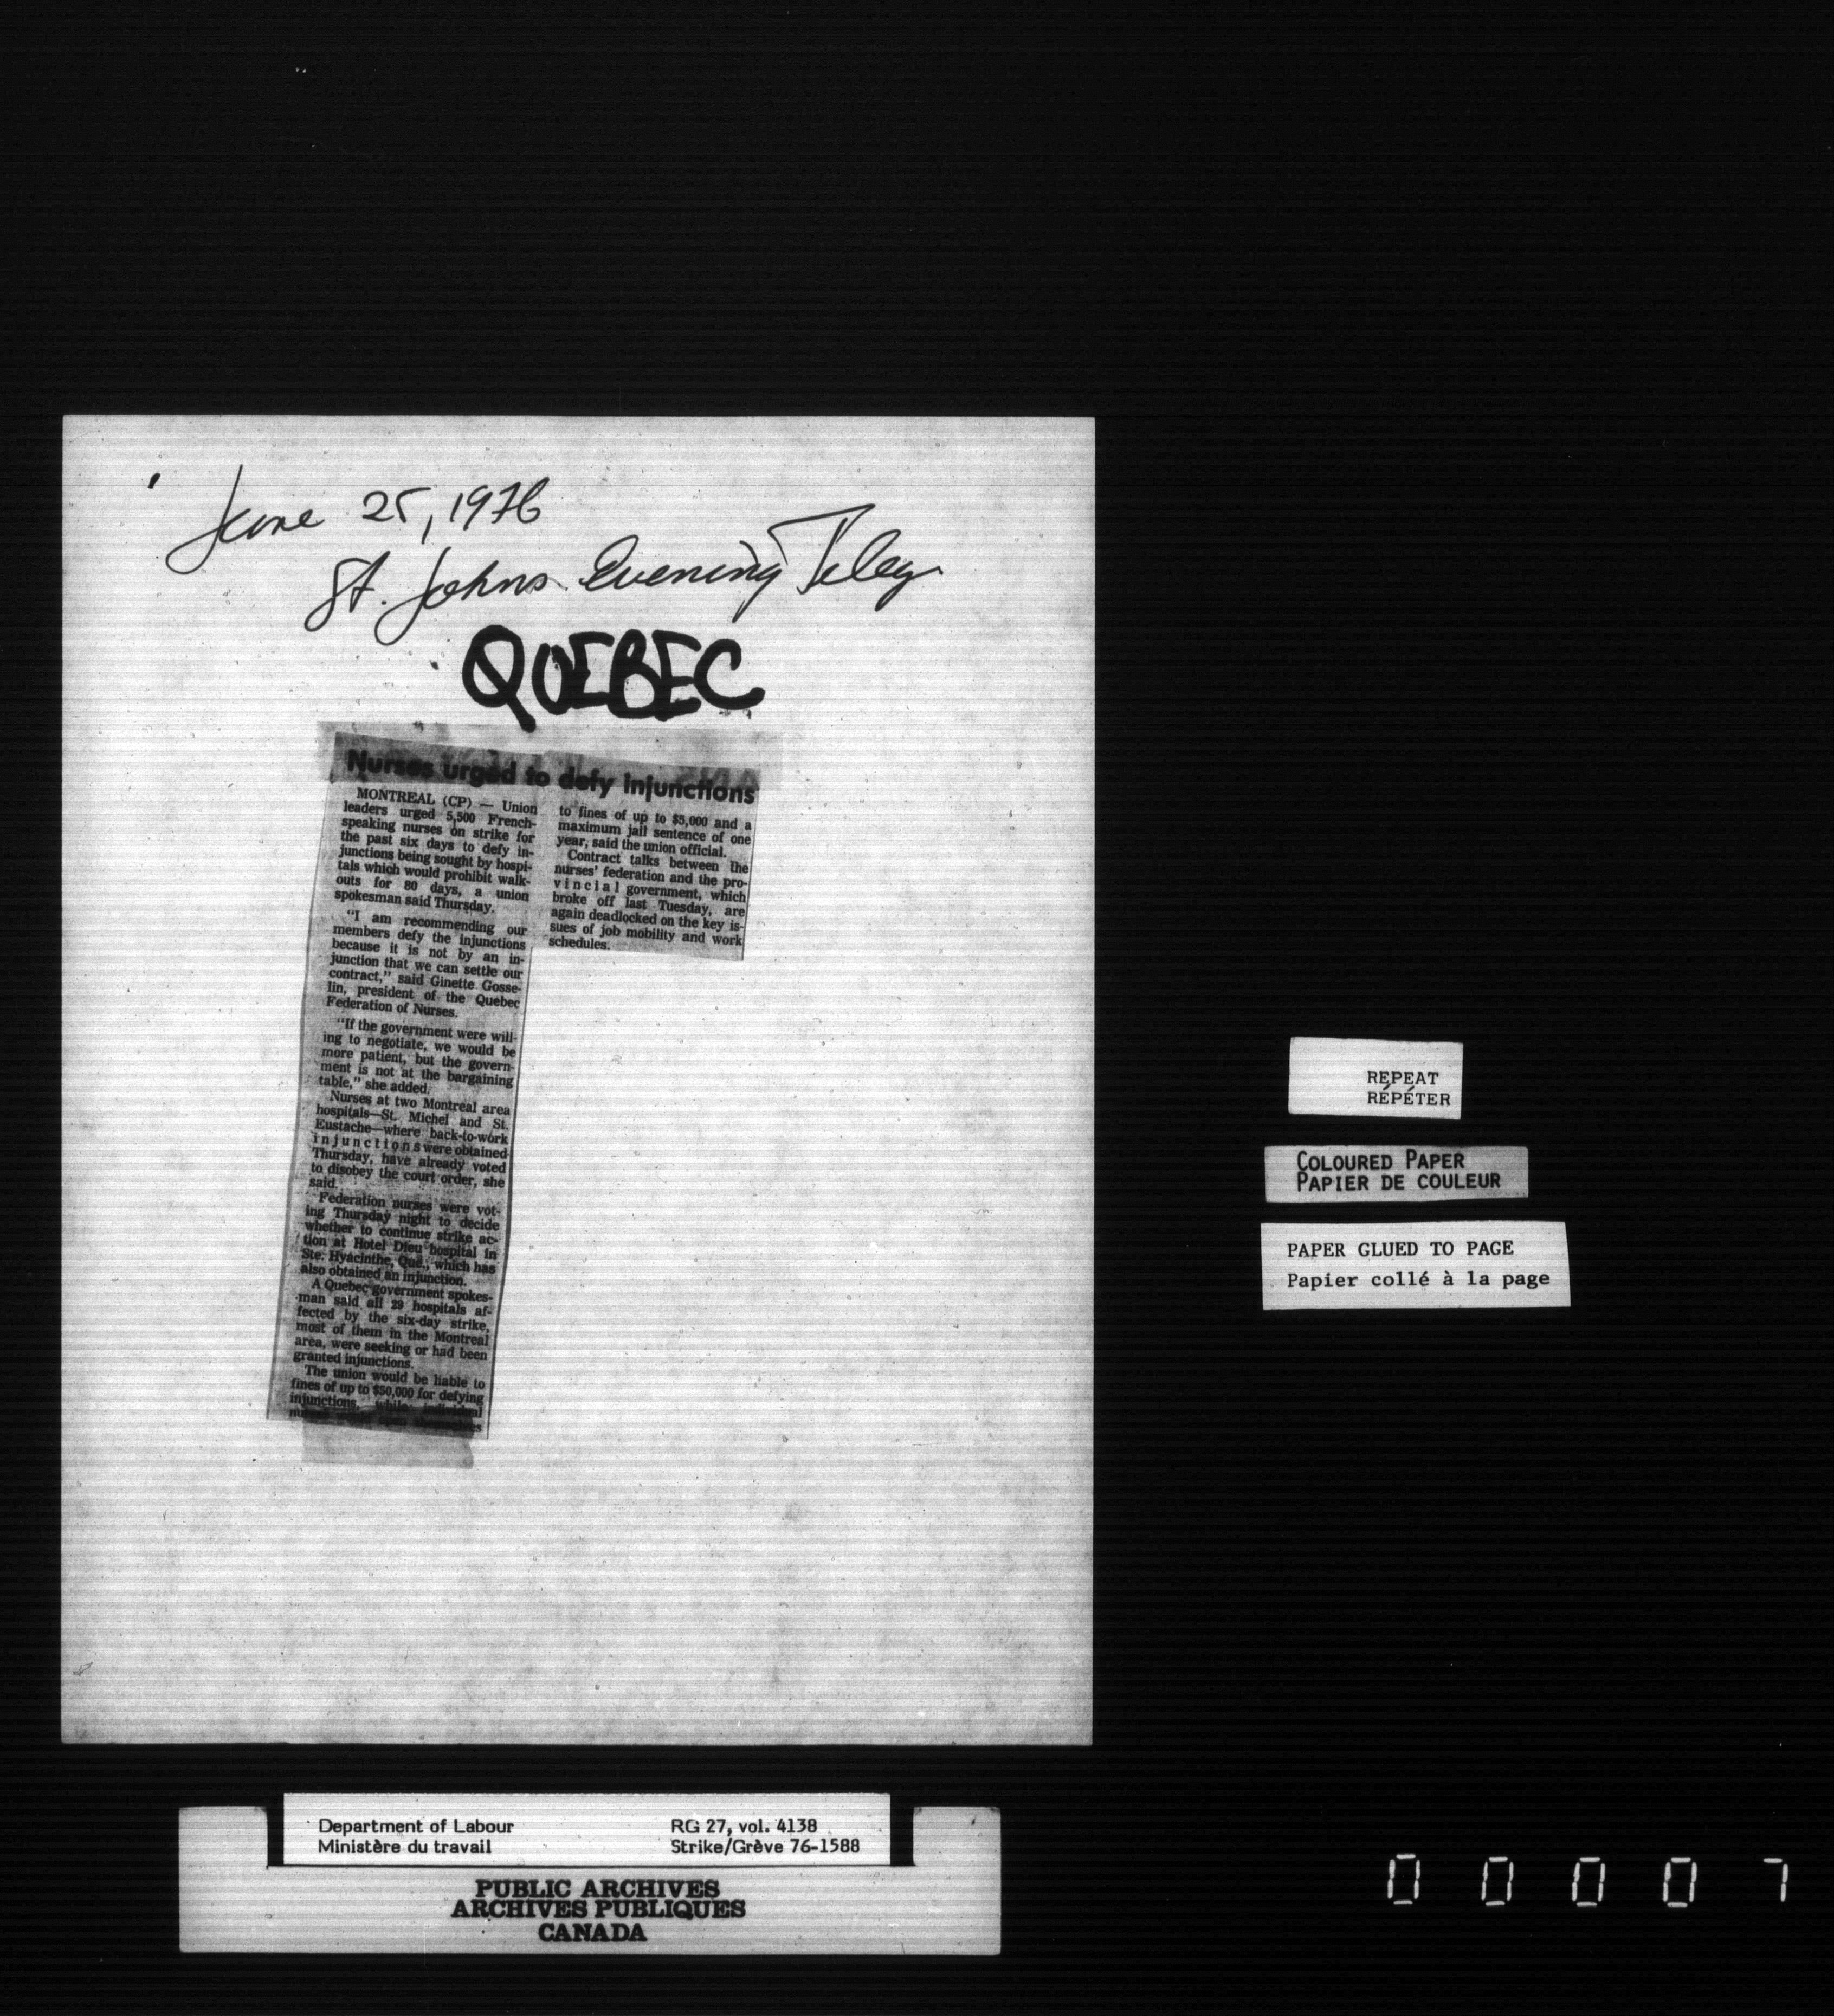 June 25, 1976
St. Johns Evening Teleg.
QUEBEC
Nurses urged to defy injunctions
MONTREAL (CP) — Union
leaders urged 5,500 French-
speaking nurses on strike for
the past six days to defy in-
junctions being sought by hospi-
tals which would prohibit walk-
outs for 80 days, a union
spokesman said Thursday.
"I am recommending our
members defy the injunctions
because it is not by an in-
junction that we can settle our
contract," said Ginette Gosse-
lin, president of the Quebec
Federation of Nurses.
"If the government were will-
ing to negotiate, we would be
more patient, but the govern-
ment is not at the bargaining
table," she added.
Nurses at two Montreal area
hospitals—St. Michel and St.
Eustache—where back-to-work
injunctions were obtained
Thursday, have already voted
to disobey the court order, she
said.
Federation nurses were vot-
ing Thursday night to decide
whether to continue strike ac-
tion at Hotel Dieu hospital in
Ste. Hyacinthe, Que., which has
also obtained an injunction.
A Quebec government spokes-
man said all 29 hospitals af-
fected by the six-day strike,
most of them in the Montreal
area, were seeking or had been
granted injunctions.
The union would be liable to
fines of up to $50,000 for defying
injunctions, while individual
nurses would open themselves
to fines of up to $5,000 and a
maximum jail sentence of one
year, said the union official.
Contract talks between the
nurses' federation and the pro-
vincial government, which
broke off last Tuesday, are
again deadlocked on the key is-
sues of job mobility and work
schedules.
REPEAT
RÉPÉTER
COLOURED PAPER
PAPIER DE COULEUR
PAPER GLUED TO PAGE
Papier collé à la page
Department of Labour
Ministère du travail
RG 27, vol. 4138
Strike/Grève 76-1588
PUBLIC ARCHIVES
ARCHIVES PUBLIQUES
CANADA
0 0 0 0 7